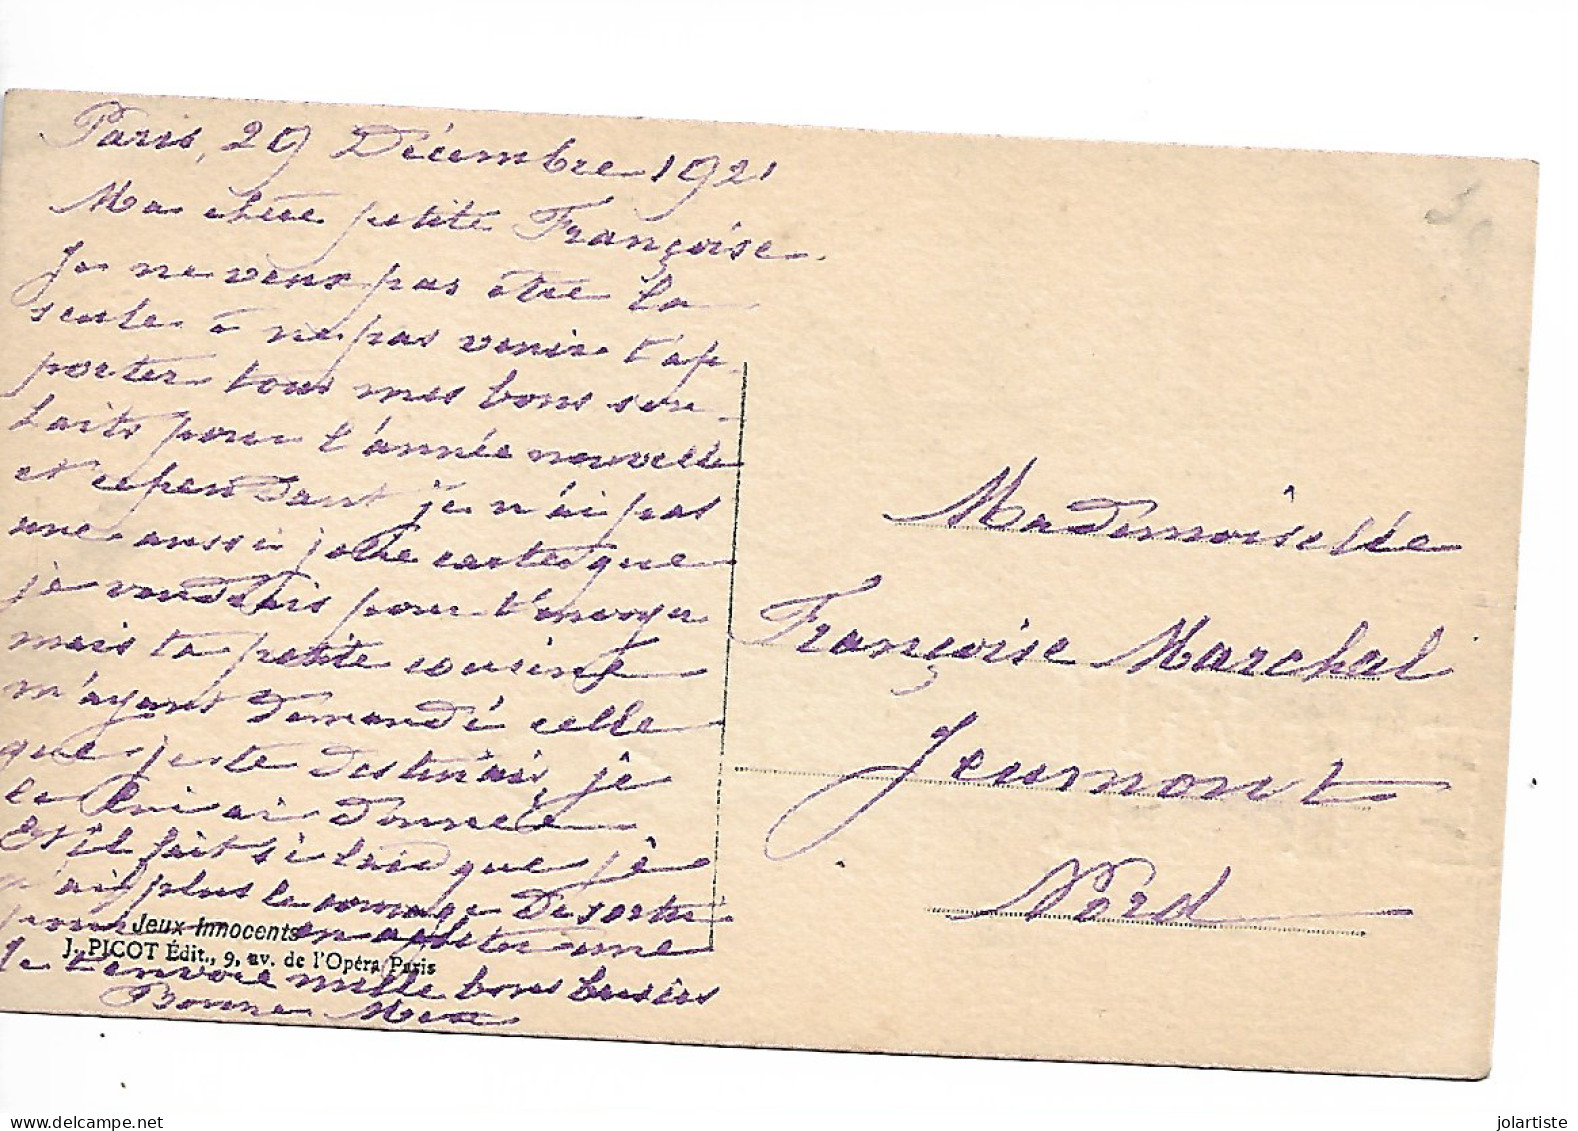 Paris, 29 Décembre 1921
Ma chère petite Françoise.
Je ne veux pas être la
seule à ne pas venir t'ap-
porter tous mes bons sou-
haits pour l'année nouvelle
et cependant je n'ai pas
une aussi jolie carte que
je voudrais pour t'envoyer
mais ta petite cousine
m'ayant demandé celle
que je te destinais, je
la lui ai donnée
Et il fait si laid que je
n'ai plus le courage de sortir
pour en acheter une
Je t'envoie mille bons baisers
Bonne Mea
Jeux Innocents
J. PICOT Édit., 9, av. de l'Opéra Paris
Mademoiselle
Françoise Marchal
Jeumont
Nord
jolartiste